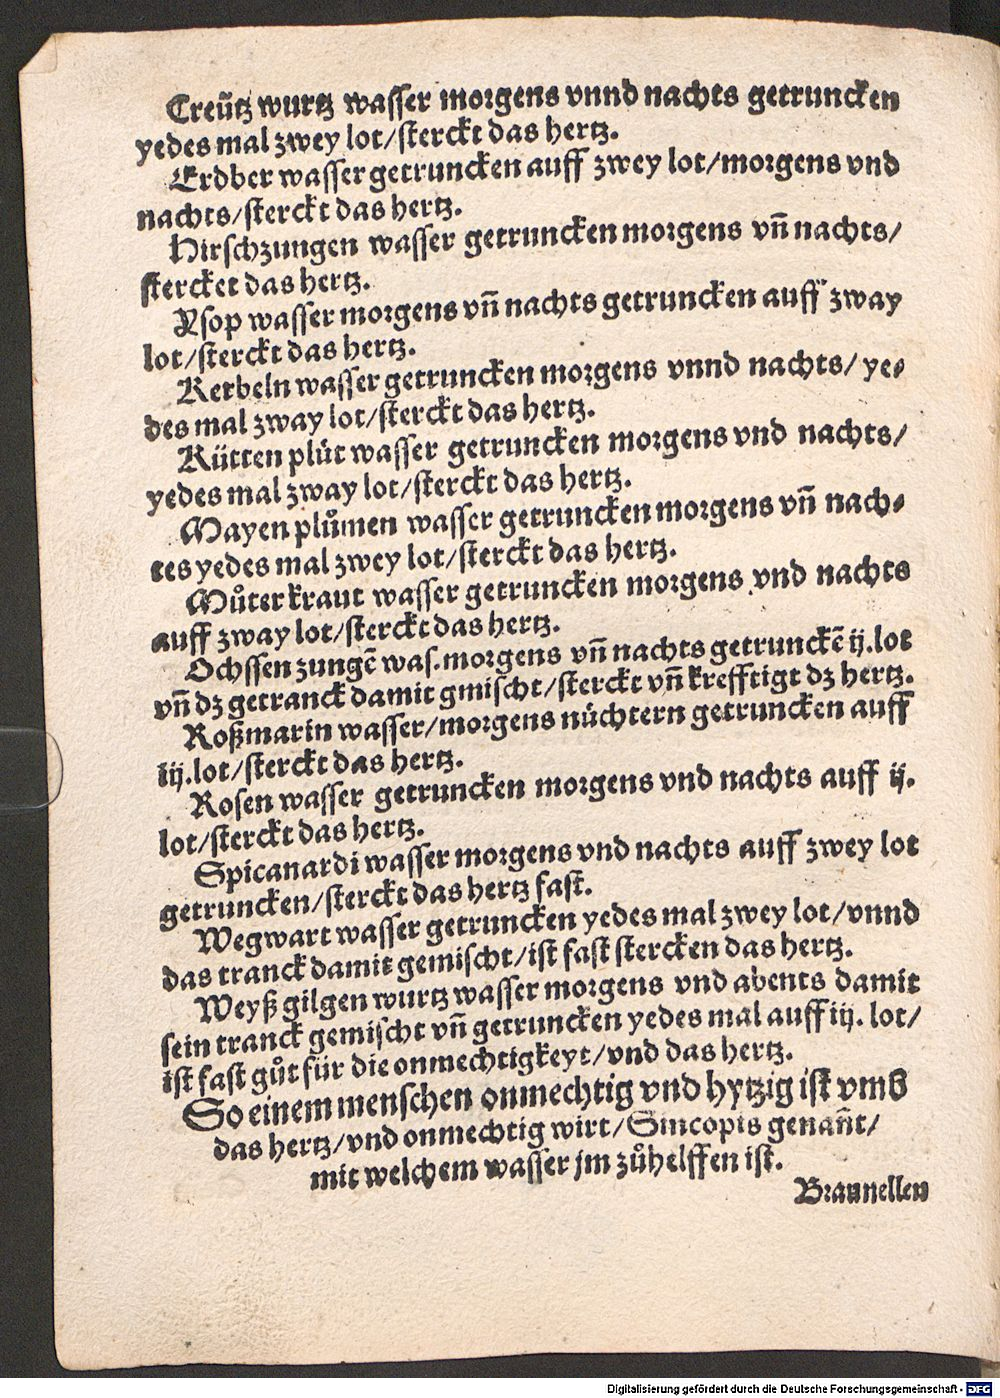 Creütz wurtz wasser morgens vnnd nachts getruncken
yedes mal zwey lot/sterckt das hertz.
Erdber wasser getruncken auff zwey lot/morgens vnd
nachts/sterckt das hertz.
Hirschzungen wasser getruncken morgens vn̄ nachts/
stercket das hertz.
Ysop wasser morgens vn̄ nachts getruncken auff zway
lot/sterckt das hertz.
Kerbeln wasser getruncken morgens vnnd nachts/ ye⸗
des mal zway lot/sterckt das hertz.
Kütten plüt wasser getruncken morgens vnd nachts/
yedes mal zway lot/sterckt das hertz.
Mayen plůmen wasser getruncken morgens vn̄ nach⸗
tes yedes mal zwey lot/sterckt das hertz.
Můter kraut wasser getruncken morgens vnd nachts
auff zway lot/sterckt das hertz.
Ochssen zungē was. morgens vn̄ nachts getrunckē ij. lot
vn̄ dz getranck damit gmischt/sterckt vn̄ krefftigt dz hertz.
Roßmarin wasser/morgens nüchtern getruncken auff
iij. lot/sterckt das hertz.
Rosen wasser getruncken morgens vnd nachts auff ij.
lot/sterckt das hertz.
Spicanardi wasser morgens vnd nachts auff zwey lot
getruncken/sterckt das hertz fast.
Wegwart wasser getruncken yedes mal zwey lot/vnnd
das tranck damit gemischt/ist fast stercken das hertz.
Weyß gilgen wurtz wasser morgens vnd abents damit
sein tranck gemischt vn̄ getruncken yedes mal auff iij. lot/
ist fast gůt für die onmechtigkeyt/vnd das hertz.
So einem menschen onmechtig vnd hytzig ist vmb
das hertz/vnd onmechtig wirt/Sincopis genan̄t/
mit welchem wasser jm zůhelffen ist.
Braunellen
Digitalisierung gefördert durch die Deutsche Forschungsgemeinschaft - DFG